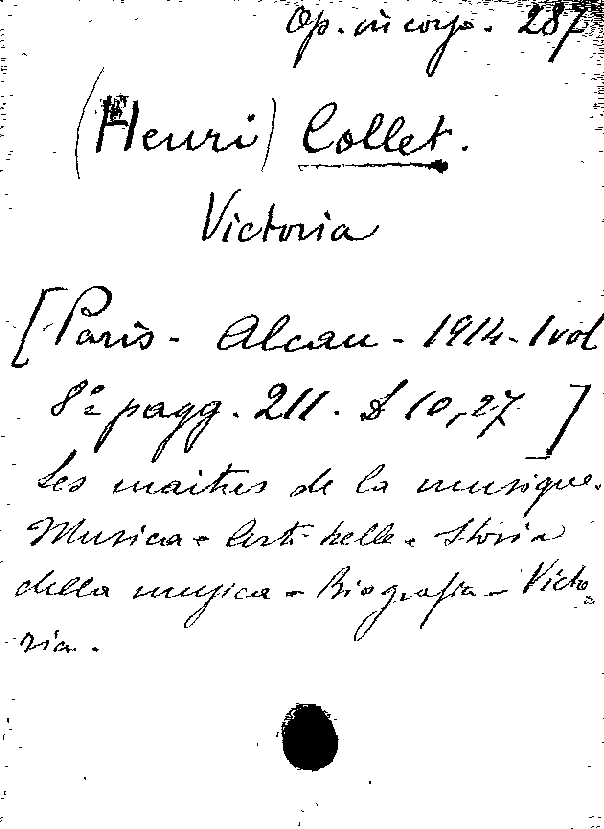 Op. in corso. 287
(Henri) Collet.
Victoria
[Paris - Alcan - 1914 - 1 vol
8º pagg. 211. L 10,27 ]
Les maitres de la musique.
Musica - Arti belle - Storia
della musica - Biografia - Victo
ria.